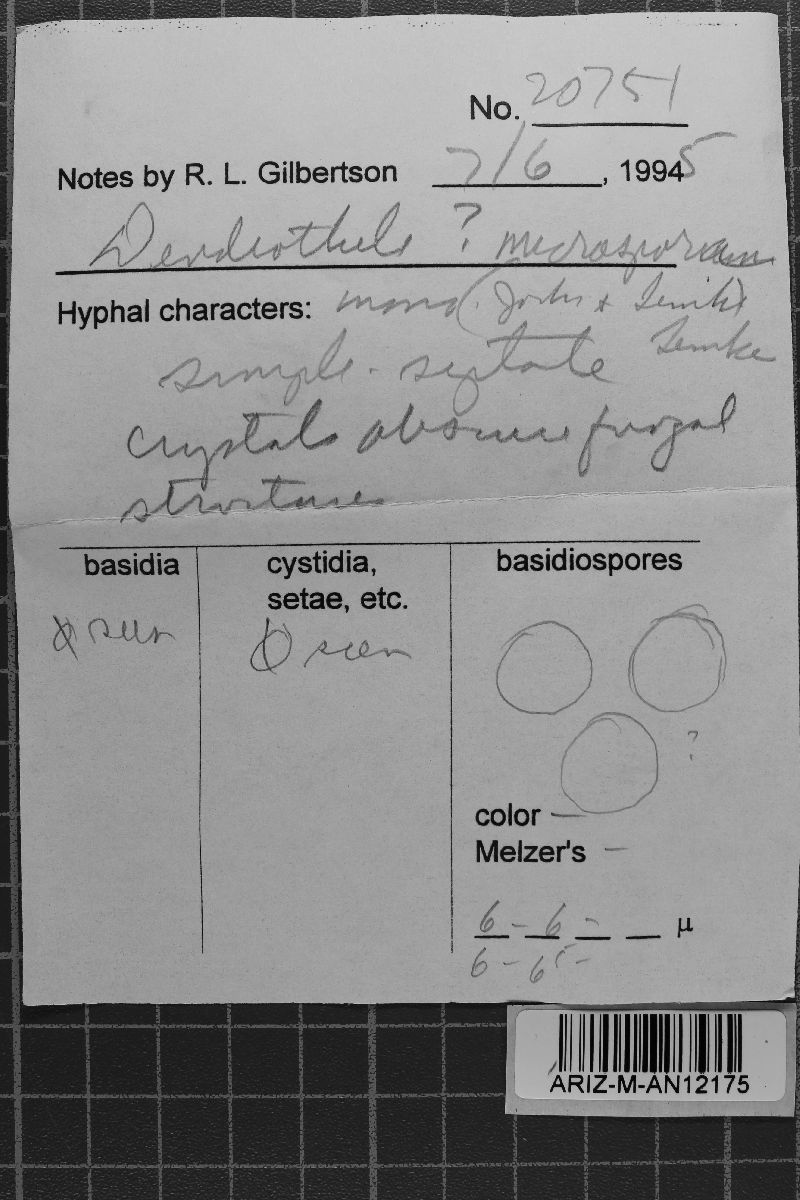 No. 20751
Notes by R. L. Gilbertson 7/6, 19945
Dendrothele ? microsporum
Hyphal characters: mono (. & Lemke)
Lemke
simple-septate
crystals obscure fungal
structures
basidia
cystidia,
setae, etc.
basidiospores
seen
seen
?
color —
Melzer's —
6 - 6 - μ
6 - 65 -
ARIZ-M-AN12175